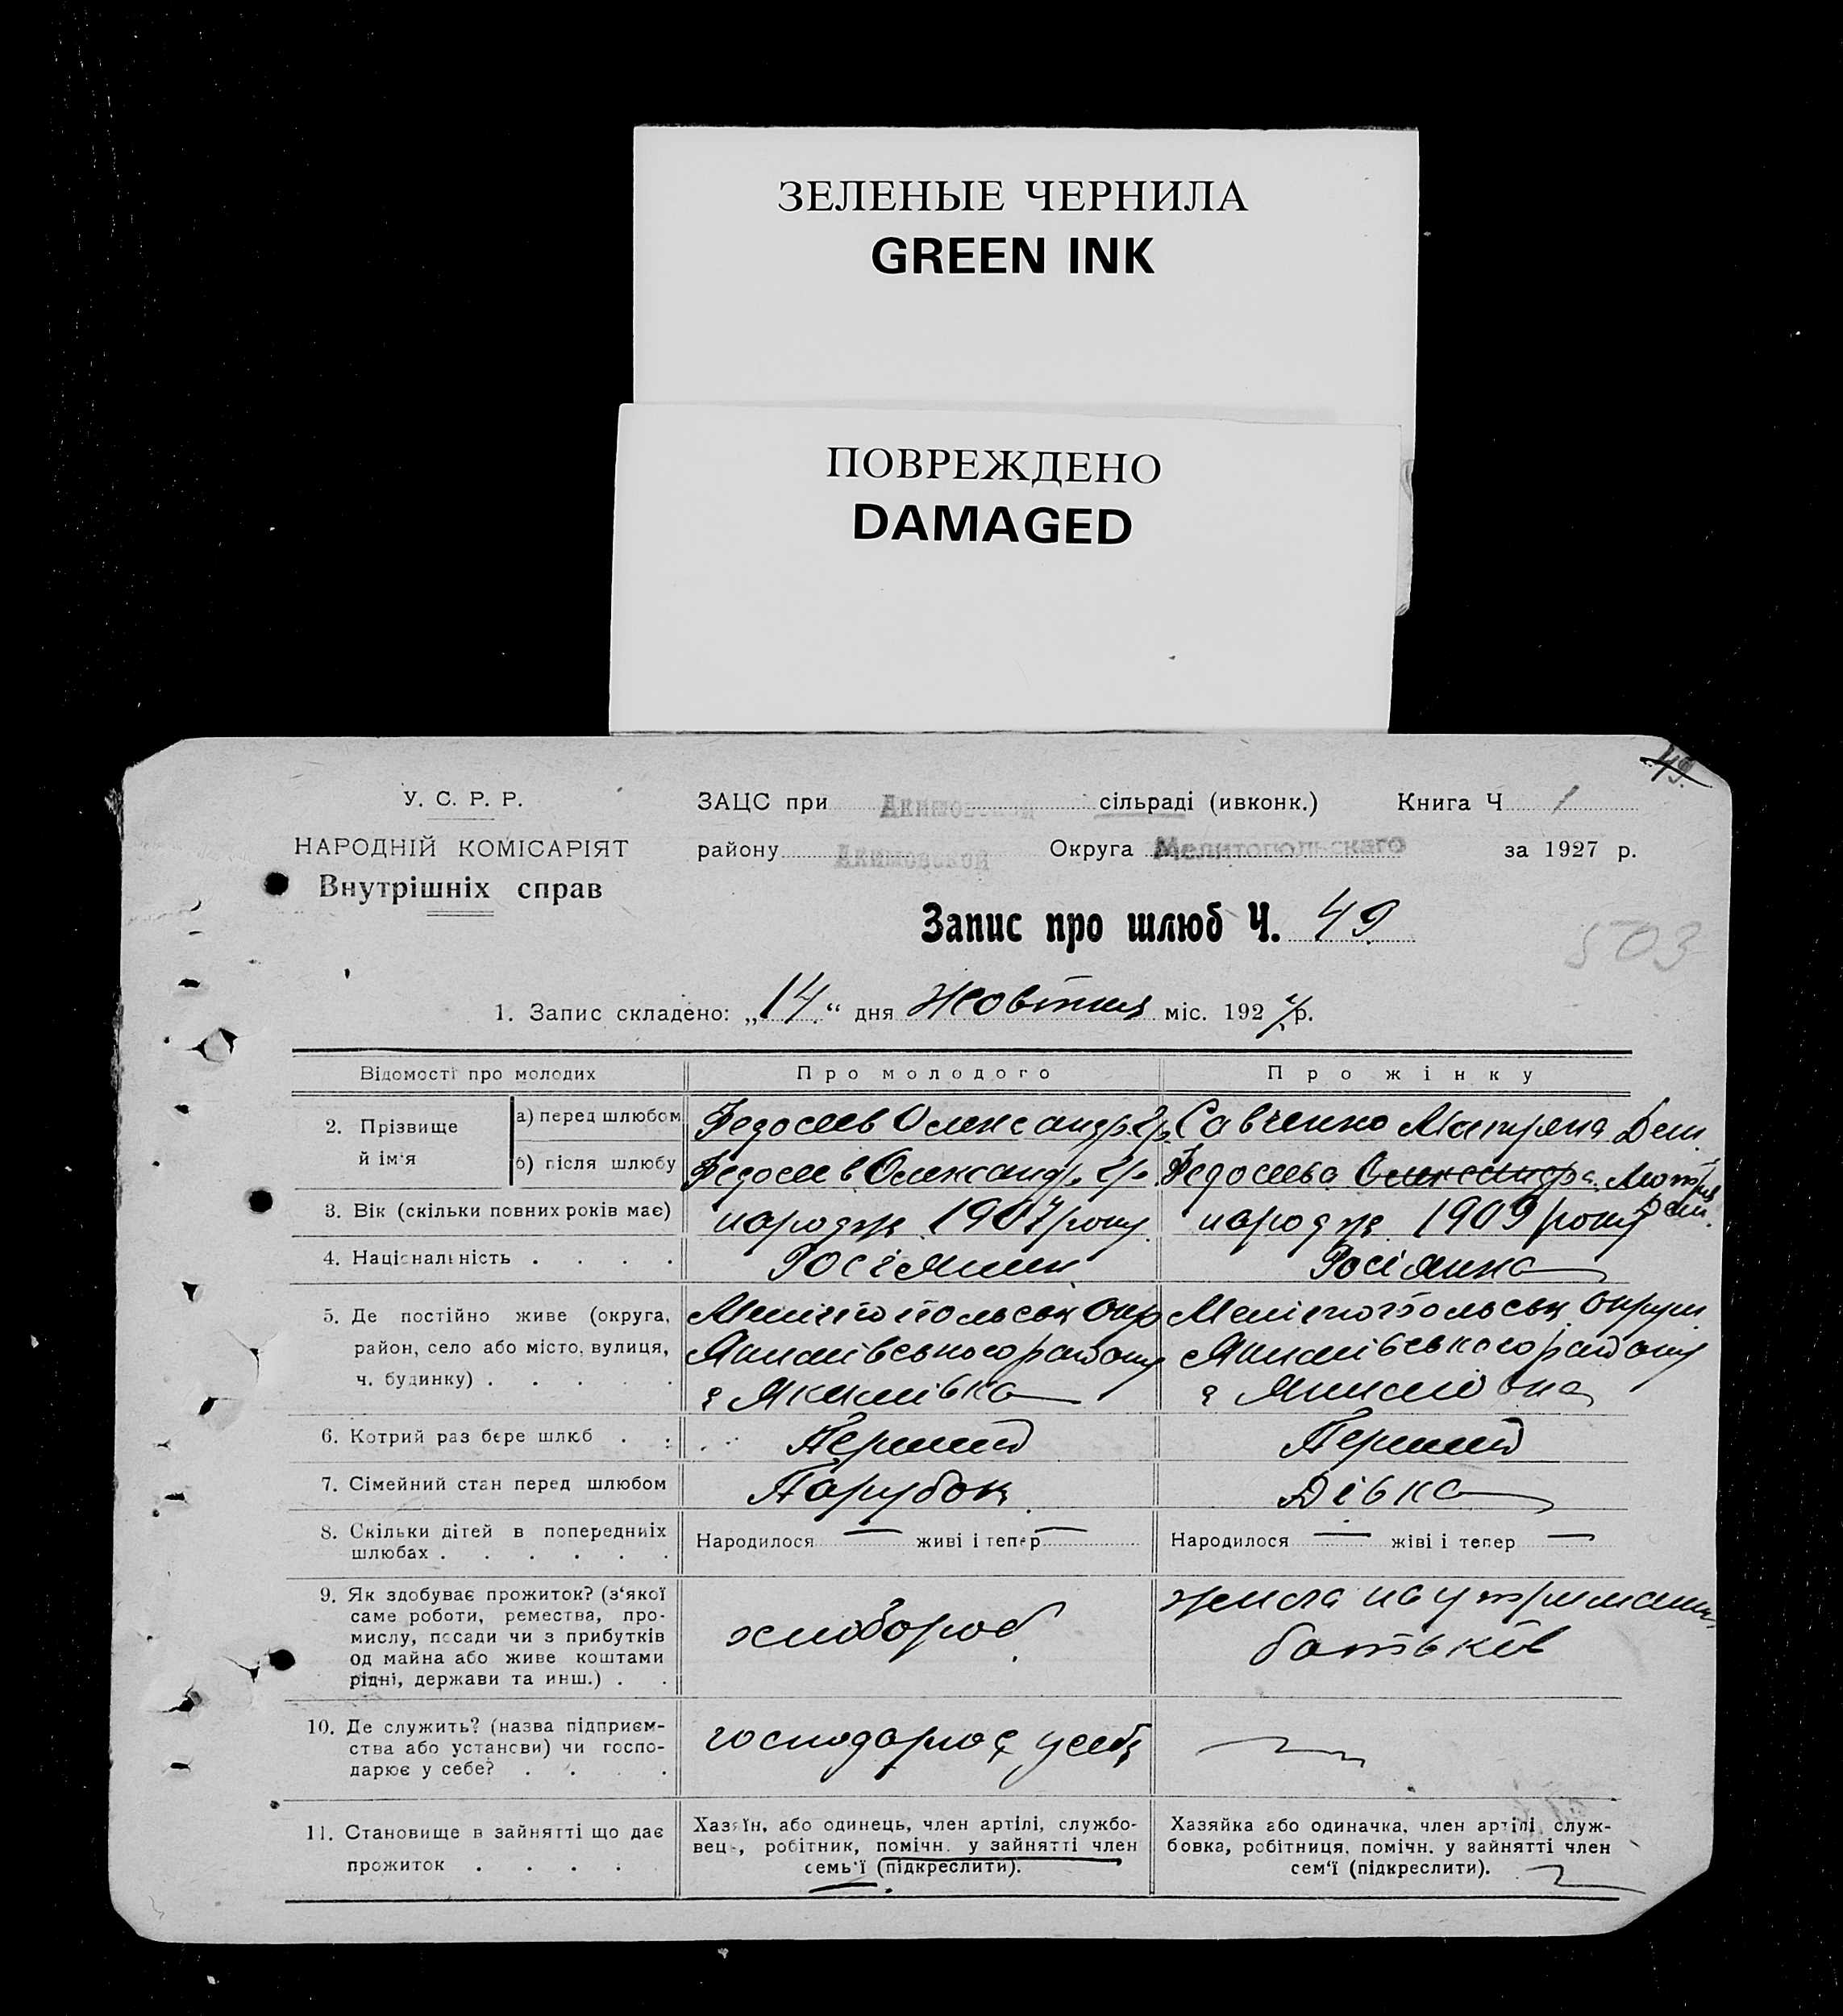 ЗЕЛЕНЫЕ ЧЕРНИЛА
GREEN INK
ПОВРЕЖДЕНО
DAMAGED
49
У. С. Р. Р.
НАРОДНІЙ КОМІСАРІЯТ
Внутрішніх справ
ЗАЦС при Акимовской сільраді (ивконк.) Книга Ч 1
району Акимовской Округа Мелитопольскаго за 1927 р.
Запис про шлюб Ч. 49
503
1. Запис складено: „14“ дня Жовтня міс. 1927 р.
Відомості про молодих Про молодого Про жінку
2. Прізвище й ім'я
а) перед шлюбом Федосеев Олександр Гр. Савченко Матряна Дем.
б) після шлюбу Федосеев Олександр Гр. Федосеева Олександра Мотря Дем.
3. Вік (скільки повних років має) народж 1907 року народж 1909 року
4. Національність . . . . Росіянин Росіянка
5. Де постійно живе (округа, Мелітопольськ окр Мелітопольськ округи
район, село або місто, вулиця, Якимівського району Якимівського району
ч. будинку) . . . . . с Якимівка с Якимовка
6. Котрий раз бере шлюб . : Перший Перший
7. Сімейний стан перед шлюбом Парубок Дівка
8. Скільки дітей в попередніх
шлюбах . . . . . . Народилося — живі і тепер — Народилося — жіві і тепер —
9. Як здобуває прожиток? (з'якої
саме роботи, ремества, про-
мислу, посади чи з прибутків
од майна або живе коштами
рідні, держави та инш.) . .
хлібороб
жила на утриманні
батьків
10. Де служить? (назва підприєм-
ства або установи) чи госпо-
дарює у себе? . . . .
господарює у себе
11. Становище в зайнятті що дає
прожиток . . . .
Хазяїн, або одинець, член артілі, службо-
вець, робітник, помічн. у зайнятті член
семь'ї (підкреслити).
Хазяйка або одиначка, член артілі служ-
бовка, робітниця, помічн. у зайнятті член
сем'ї (підкреслити).